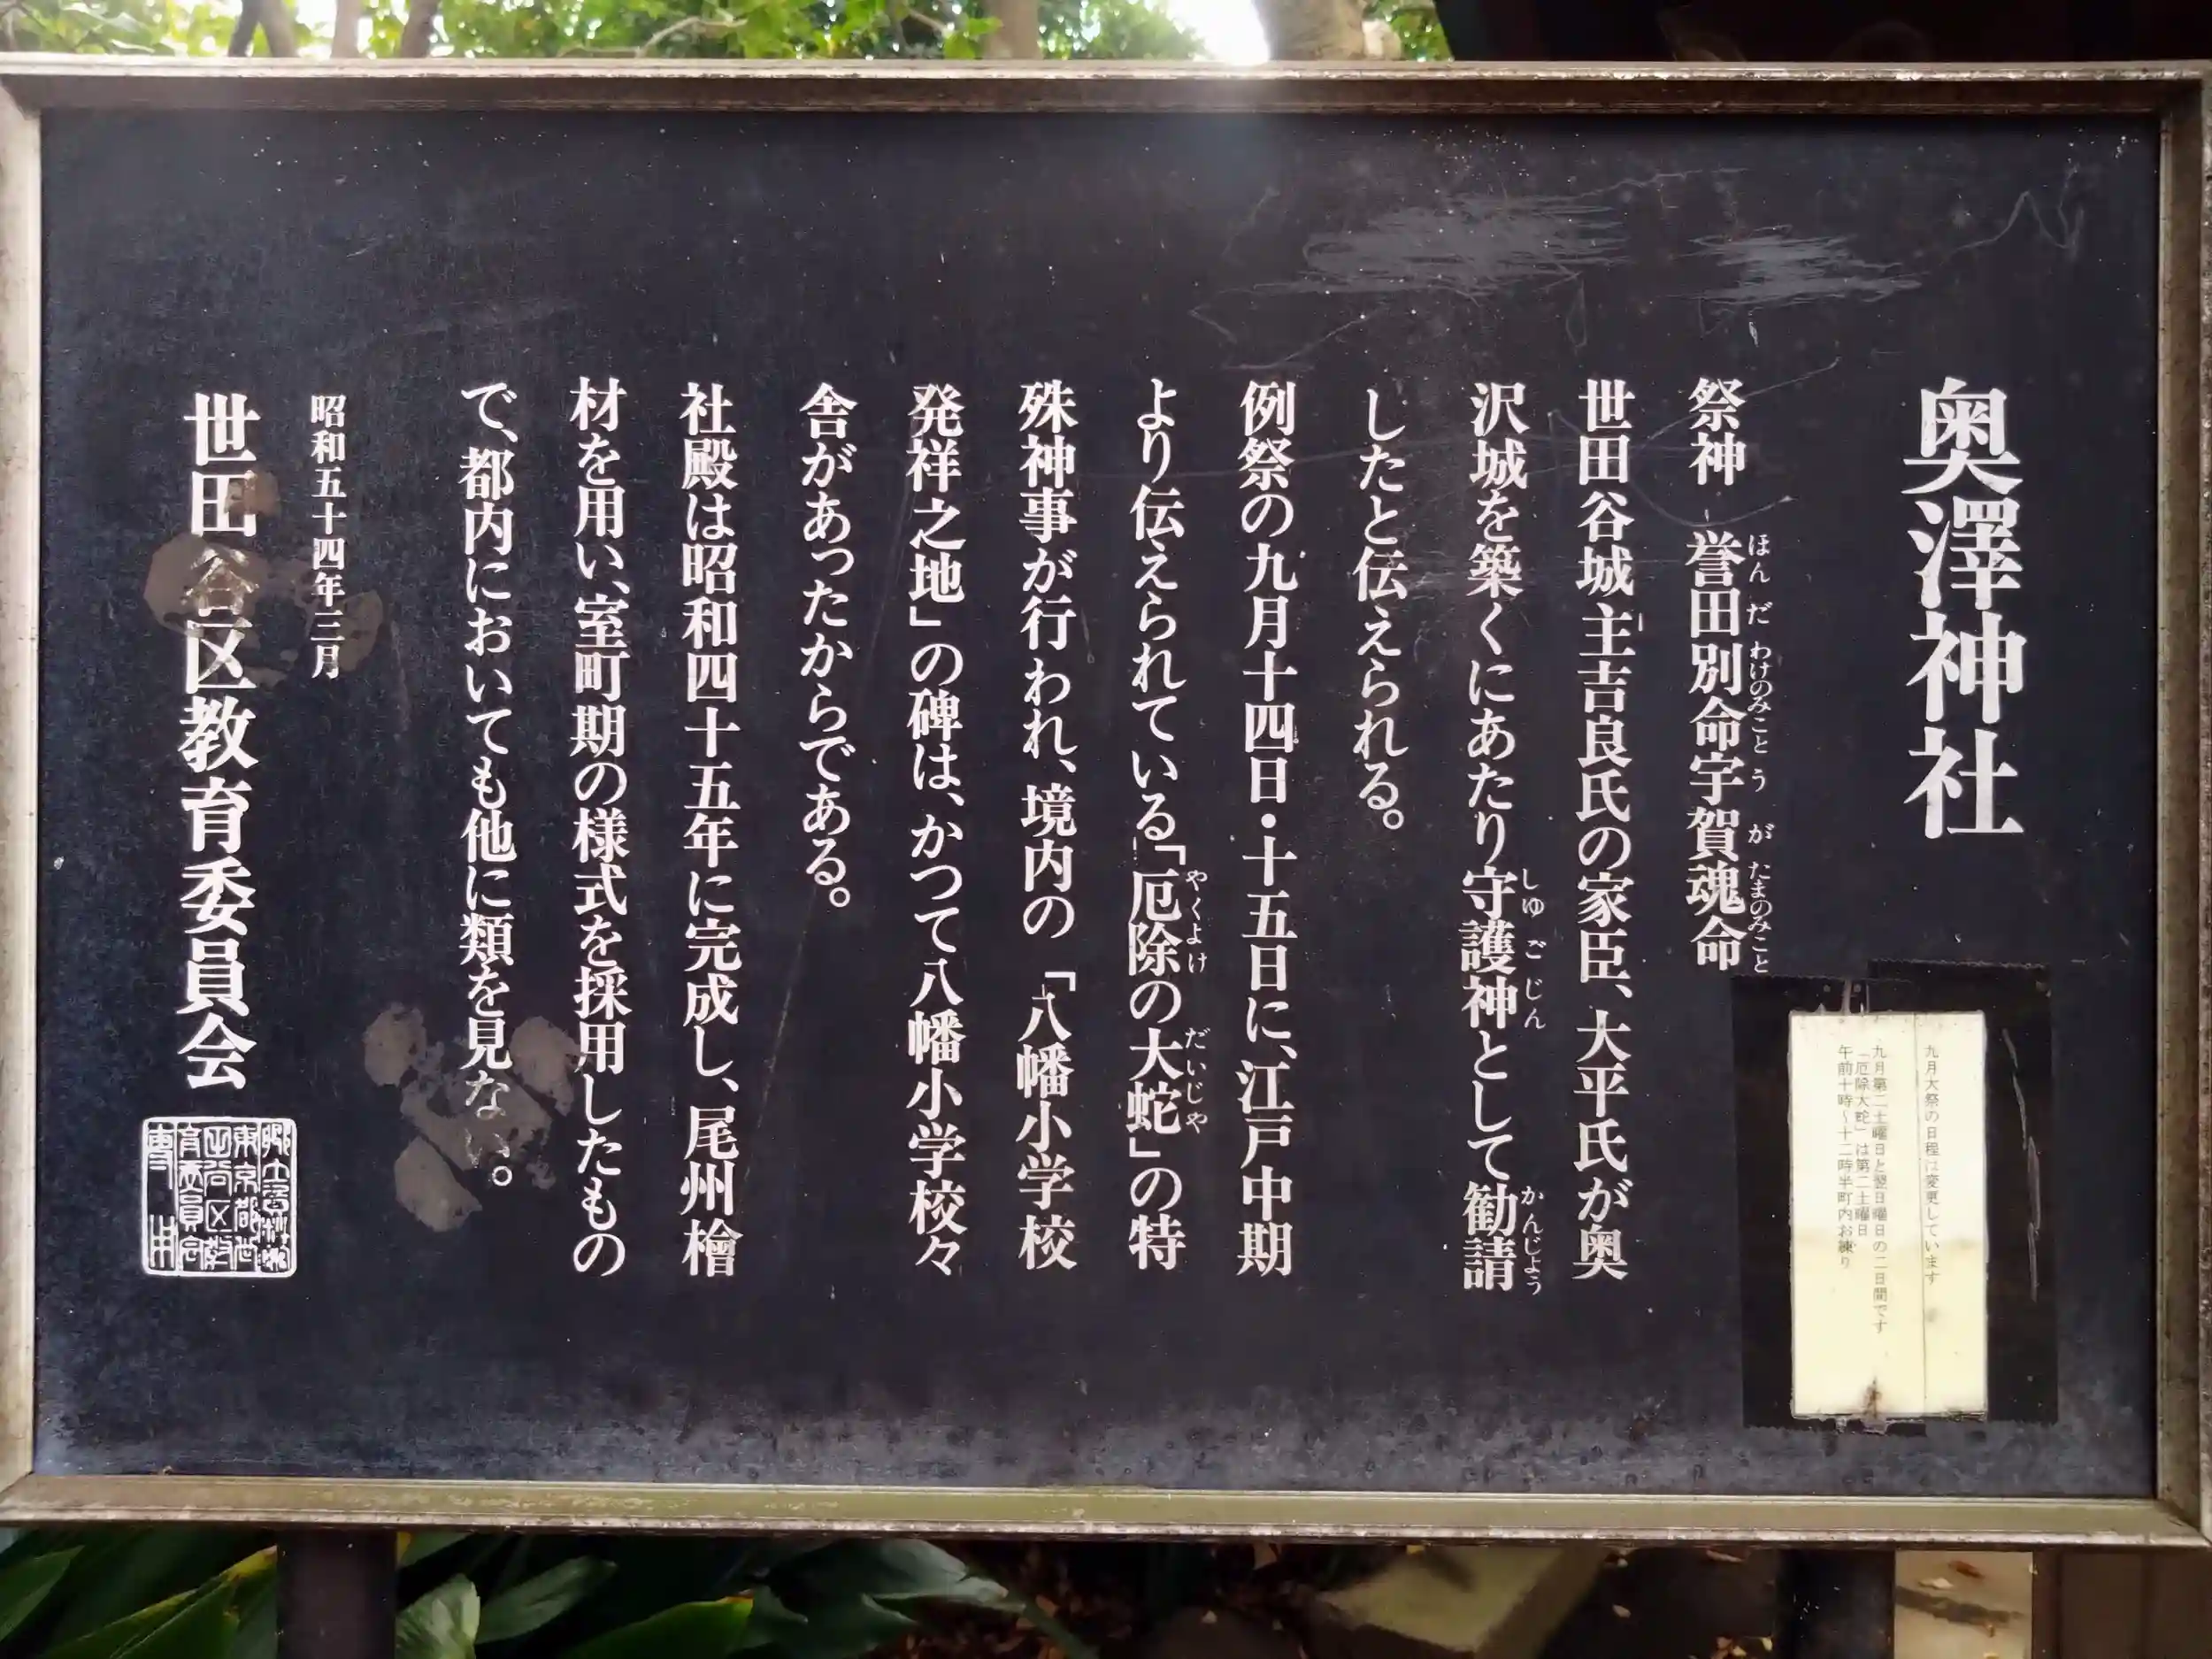 奥澤神社
祭神 誉田別命宇賀魂命
ほんだわけのみことうがたまのみこと
世田谷城主吉良氏の家臣、大平氏が奥
沢城を築くにあたり守護神として勧請
しゆごじん かんじよう
したと伝えられる。
例祭の九月十四日・十五日に、江戸中期
より伝えられている「厄除の大蛇」の特
やくよけ だいじや
殊神事が行われ、境内の「八幡小学校
発祥之地」の碑は、かつて八幡小学校々
舎があったからである。
社殿は昭和四十五年に完成し、尾州檜
材を用い、室町期の様式を採用したもの
で、都内においても他に類を見ない。
昭和五十四年三月
世田谷区教育委員会
九月大祭の日程は変更しています
九月第二土曜日と翌日曜日の二日間です
「厄除大蛇」は第二土曜日
午前十時〜十二時半町内お練り